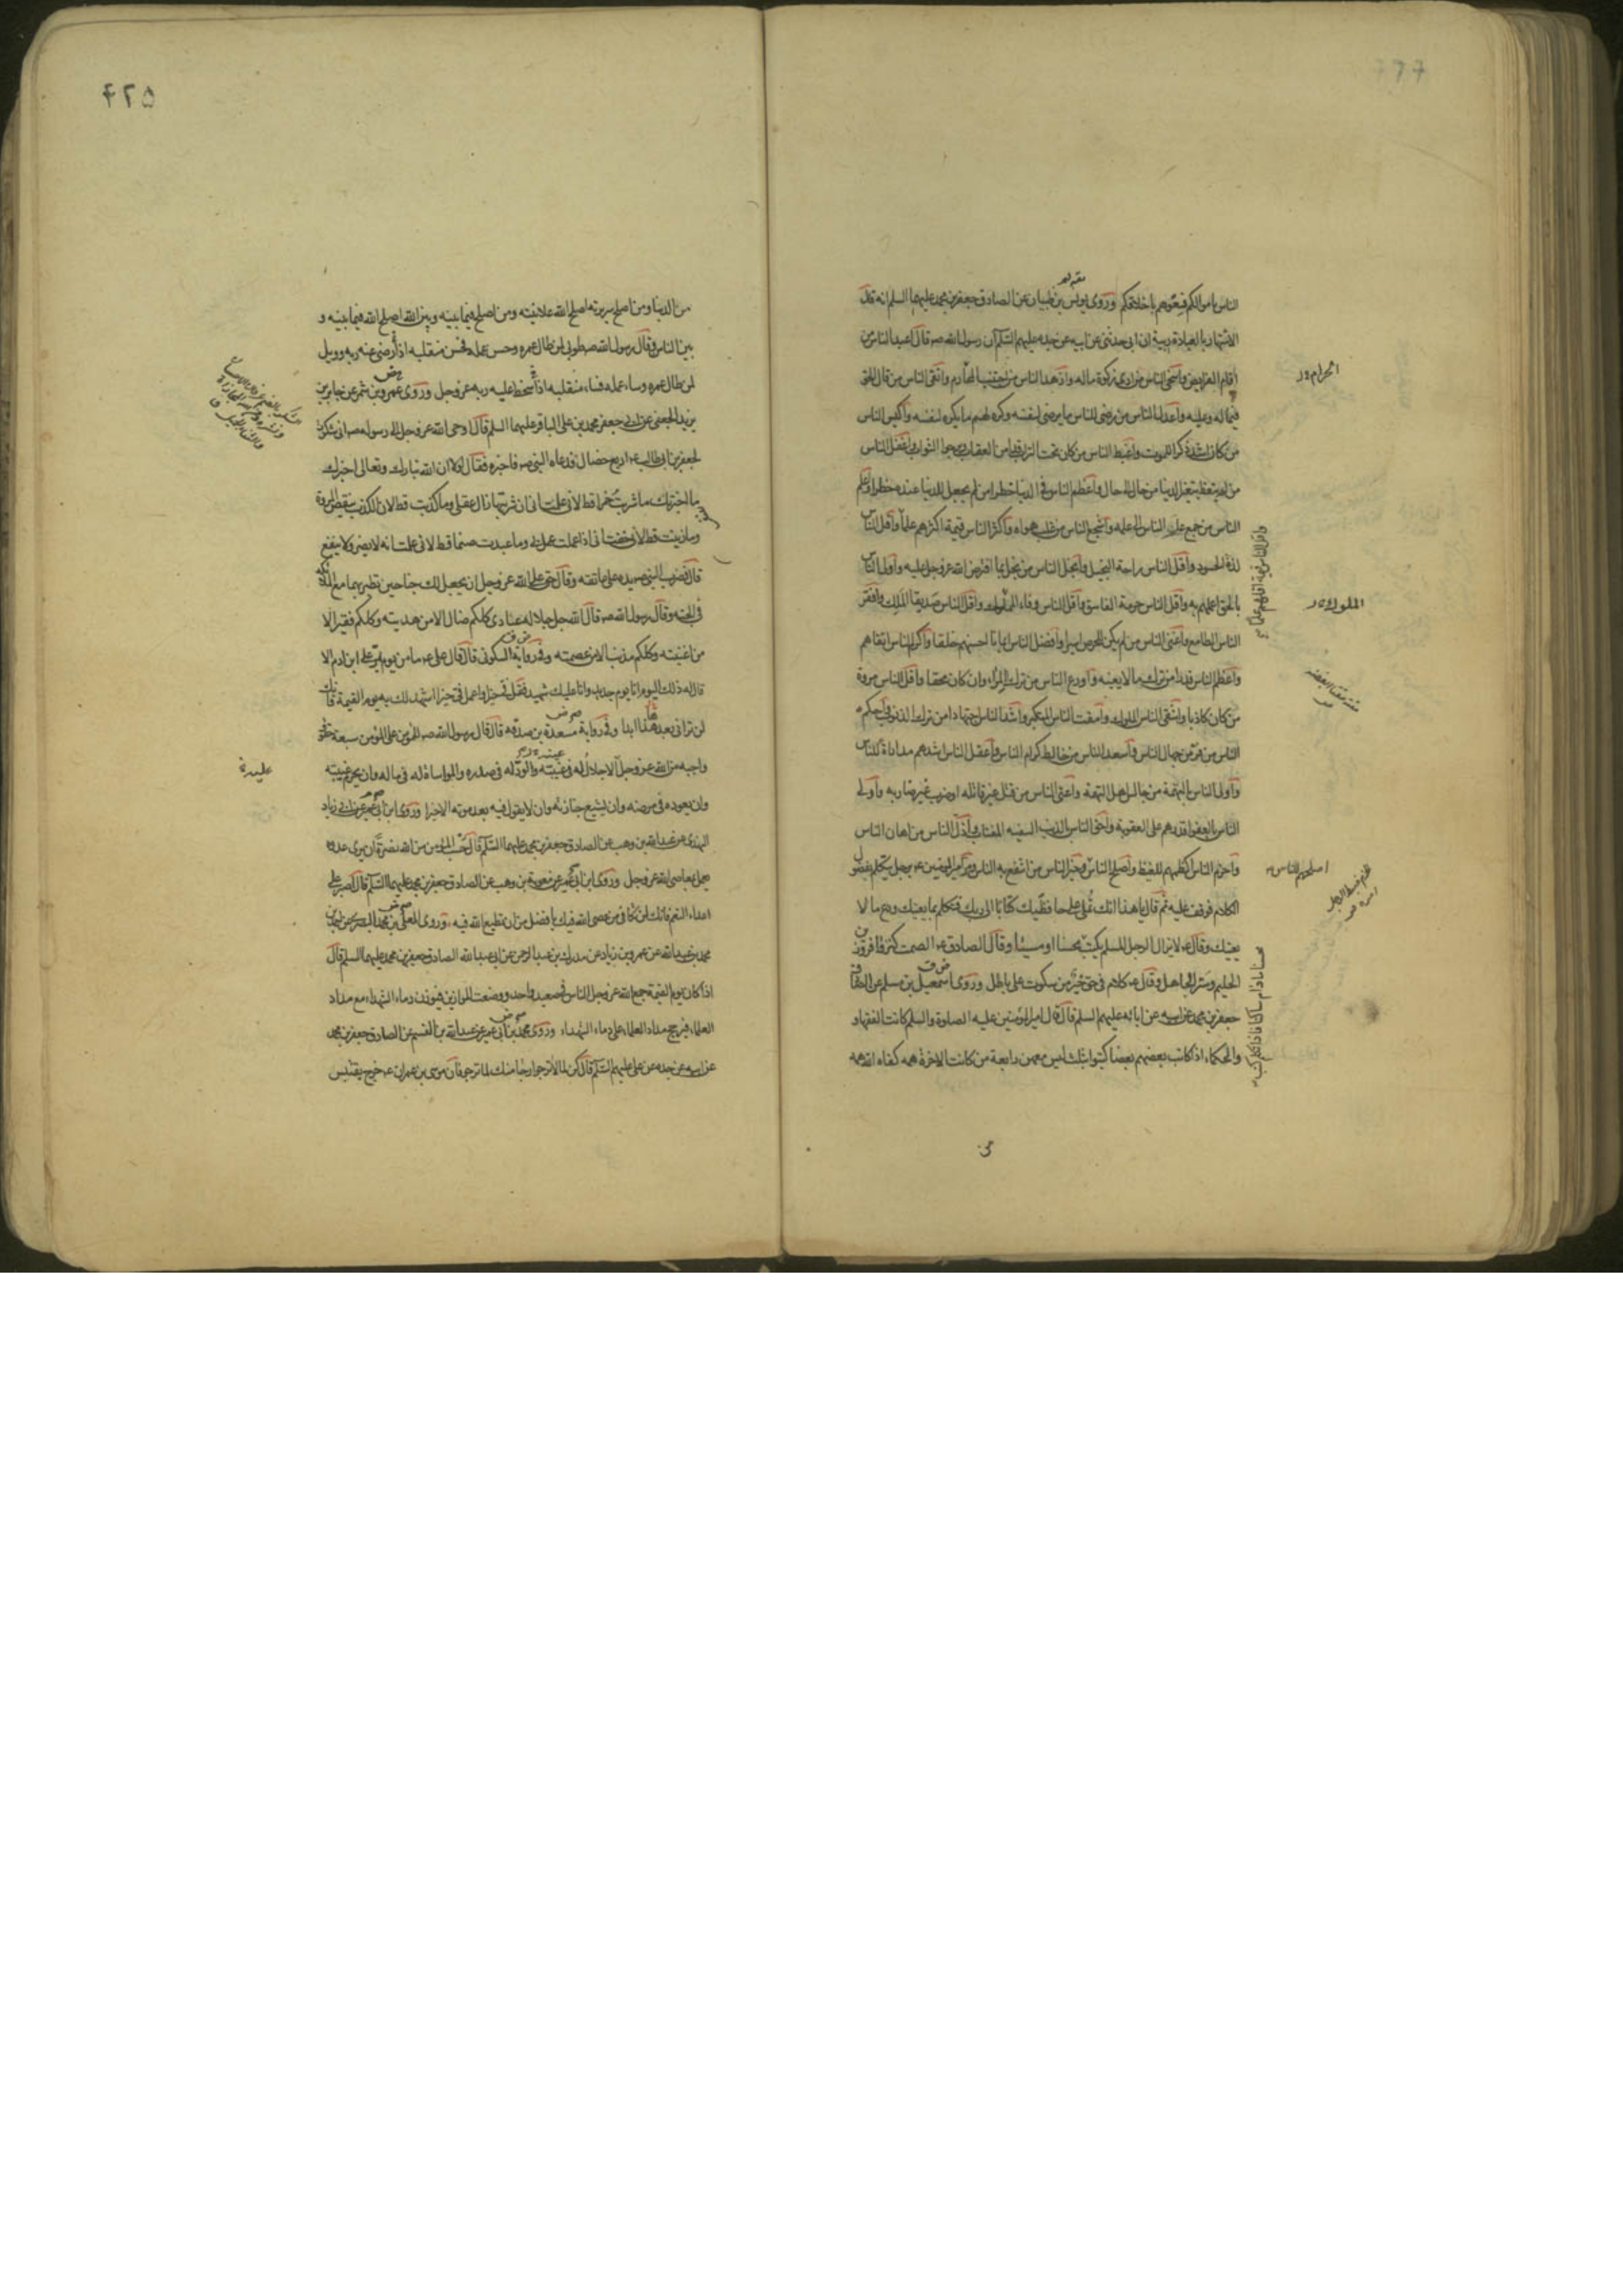 الناس باموالكم فسعوهم باخلاقكم وروى يونس بن ظبيان عن الصادق جعفر بن محمد عليهما السلم انه قال
الاشتهار بالعبادة ريبة ان ابى حدثنى عن ابيه عن جده عليهم السلم ان رسول الله صه قال اعبد الناس من
اقام الفرايض واسخى الناس من ادى زكوة ماله وازهد الناس من اجتنب المحارم واتقى الناس من قال الحق
فيما له وعليه واعدل الناس من رضى للناس ما يرضى لنفسه وكره لهم ما يكره لنفسه واكيس الناس
من كان اشد ذكرا للموت واغبط الناس من كان تحت التراب قد امن العقاب يرجوا الثواب واغفل الناس
من لم يتعظ بتغير الدنيا من حال الى حال واعظم الناس فى الدنيا خطرا من لم يجعل للدنيا عنده خطرا واعلم
الناس من جمع علم الناس الى علمه واشجع الناس من غلب هواه واكثر الناس قيمة اكثرهم علما واقل الناس
لذة الحسود واقل الناس راحة البخيل وابخل الناس من بخل بما افترض الله عز وجل عليه واولى الناس
بالحق اعلمهم به واقل الناس حرمة الفاسق واقل الناس وفاء المملوك واقل الناس صديقا الملك وافقر
الناس الطامع واغنى الناس من لم يكن للحرص اسيرا وافضل الناس ايمانا احسنهم خلقا واكرم الناس اتقاهم
واعظم الناس قدرا من ترك ما لا يعنيه واورع الناس من ترك المراء وان كان محقا واقل الناس مروة
من كان كاذبا واشقى الناس الملوك وامقت الناس المتكبر واشد الناس اجتهادا من ترك الذنوب واحكم
الناس من فر من جهال الناس واسعد الناس من خالط كرام الناس واعقل الناس اشدهم مداراة للناس
واولى الناس بالتهمة من جالس اهل التهمة واعتى الناس من قتل غير قاتله او ضرب غير ضاربه واولى
الناس بالعفو اقدرهم على العقوبة واحق الناس بالذنب السفيه المغتاب واذل الناس من اهان الناس
واحزم الناس اكظمهم للغيظ واصلح الناس وخير الناس من انتفع به الناس ومر امير المؤمنين عه برجل يتكلم بفضول
الكلام فوقف عليه ثم قال يا هذا انك تملى على حافظيك كتابا الى ربك فتكلم بما يعنيك ودع ما لا
يعنيك وقال عه لا يزال الرجل المسلم يكتب محسنا او مسيئا وقال الصادق عه الصمت كنز وافر وزين
الحليم وستر الجاهل وقال عه كلام فى حق خير من سكوت على باطل وروى اسمعيل بن مسلم عن الصادق
جعفر بن محمد عن ابيه عن ابائه عليهم السلم قال قال امير المؤمنين عليه الصلوة والسلم كانت الفقهاء
والحكماء اذا كاتب بعضهم بعضا كتبوا بثلث ليس معهن رابعة من كانت الاخرة همه كفاه الله همه
المحارم
الملوك
اصلحهم للناس
من
٤٢٥
من الدنيا ومن اصلح سريرته اصلح الله علانيته ومن اصلح فيما بينه وبين الله اصلح الله فيما بينه و
بين الناس وقال رسول الله صه طوبى لمن طال عمره وحسن عمله فحسن منقلبه اذا رضى عنه ربه وويل
لمن طال عمره وساء عمله فساء منقلبه اذا سخط عليه ربه عز وجل وروى عمرو بن شمر عن جابر بن
يزيد الجعفى عن ابى جعفر محمد بن على الباقر عليهما السلم قال اوحى الله عز وجل الى رسوله صه انى شكرت
لجعفر بن ابى طالب عه اربع خصال فدعاه النبى صه فاخبره فقال لولا ان الله تبارك وتعالى اخبرك
ما اخبرتك ما شربت خمرا قط لانى علمت انى ان شربتها زال عقلى وما كذبت قط لان الكذب ينقص المروة
وما زنيت قط لانى خفت انى اذا عملت عمل بى وما عبدت صنما قط لانى علمت انه لا يضر ولا ينفع
قال فضرب النبى صه يده على عاتقه وقال حق على الله عز وجل ان يجعل لك جناحين تطير بهما مع الملائكة
فى الجنة وقال رسول الله صه قال الله جل جلاله عبادى كلكم ضال الا من هديته وكلكم فقير الا
من اغنيته وكلكم مذنب الا من عصمته وفى رواية السكونى قال قال على عه ما من يوم يمر على ابن ادم الا
قال له ذلك اليوم انا يوم جديد وانا عليك شهيد فقل فى خيرا واعمل فى خيرا اشهد لك به يوم القيمة فانك
لن ترانى بعد هذا ابدا وفى رواية مسعدة بن صدقه قال قال رسول الله صه للمؤمن على المؤمن سبعة حقوق
واجبه من الله عز وجل الاجلال له فى غيبته والود له فى صدره والمواساة له فى ماله وان يحرم غيبته
وان يعوده فى مرضه وان يشيع جنازته وان لا يقول فيه بعد موته الا خيرا وروى ابن ابى عمير عن ابى زياد
النهدى عن عبد الله بن وهب عن الصادق جعفر بن محمد عليهما السلم قال حسب المؤمن من الله نصرة ان يرى عدوه
يعمل بمعاصى الله عز وجل وروى ابن ابى عمير عن معوية بن وهب عن الصادق جعفر بن محمد عليهما السلم قال اصبر على
اعداء النعم فانك لن تكافى من عصى الله فيك بافضل من ان تطيع الله فيه وروى المعلى بن محمد البصرى عن احمد بن
محمد بن عبد الله عن عمرو بن زياد عن مدرك بن عبد الرحمن عن ابى عبد الله الصادق جعفر بن محمد عليهما السلم قال
اذا كان يوم القيمة جمع الله عز وجل الناس فى صعيد واحد ووضعت الموازين فتوزن دماء الشهداء مع مداد
العلماء فيرجح مداد العلماء على دماء الشهداء وروى محمد بن ابى عمير عن عبد الله بن القسم عن الصادق جعفر بن محمد
عن ابيه عن جده عن على عليهم السلم قال كن لما لا ترجو ارجا منك لما ترجو فان موسى بن عمران عه خرج يقتبس